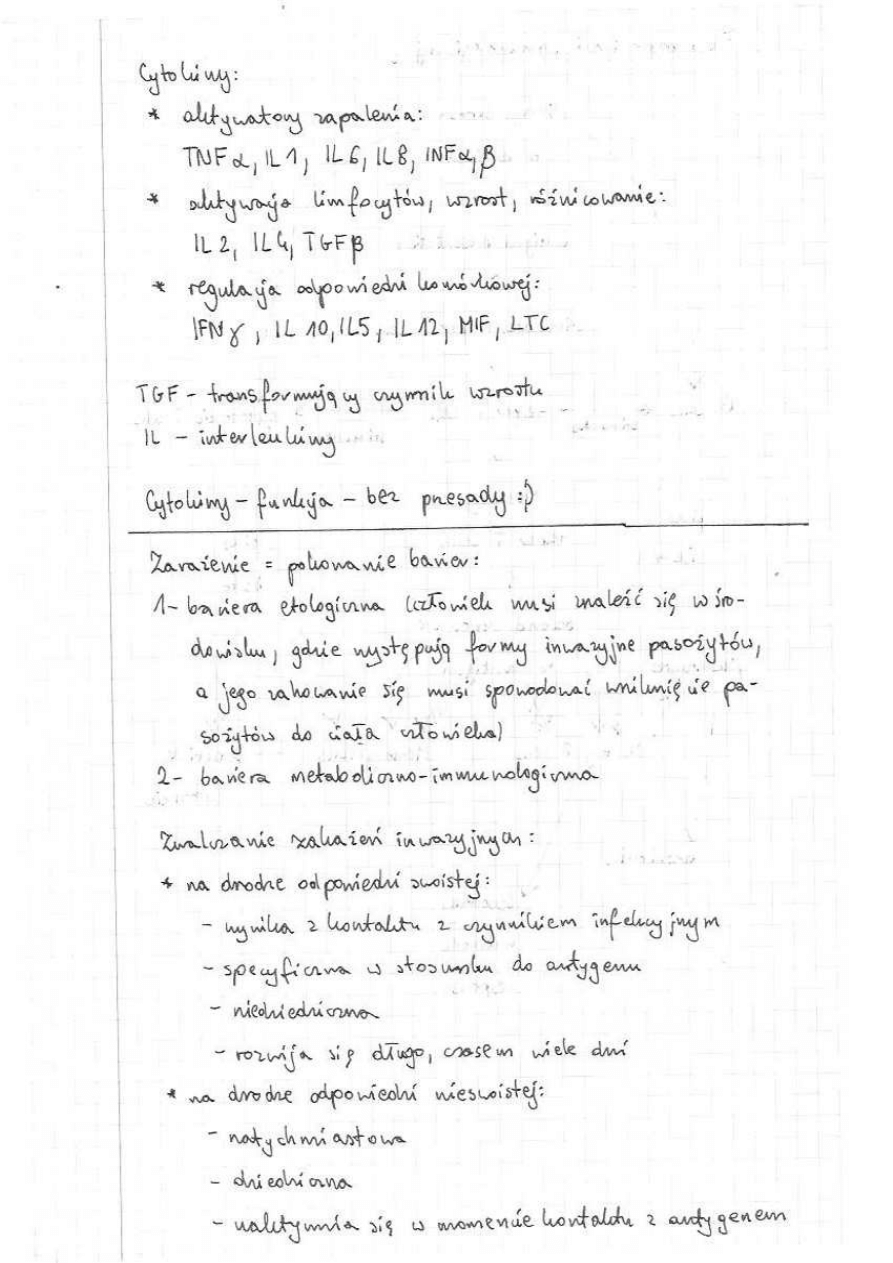 Cytokiny:
* aktywatory zapalenia:
TNF α, IL 1, IL 6, IL 8, INF α, β
* aktywacja limfocytów, wzrost, różnicowanie:
IL 2, IL 4, TGF β
* regulacja odpowiedzi komórkowej:
IFN γ, IL 10, IL5, IL 12, MIF, LTC
TGF - transformujący czynnik wzrostu
IL - interleukiny
Cytokiny - funkcja - bez przesady :)
Zarażenie = pokonanie barier:
1- bariera etologiczna (człowiek musi znaleźć się w śro-
dowisku, gdzie występują formy inwazyjne pasożytów,
a jego zachowanie się musi spowodować wniknięcie pa-
sożytów do ciała człowieka)
2- bariera metaboliczno-immunologiczna
Zwalczanie zakażeń inwazyjnych:
* na drodze odpowiedzi swoistej:
- wynika z kontaktu z czynnikiem infekcyjnym
- specyficzna w stosunku do antygenu
- niedziedziczna
- rozwija się długo, czasem wiele dni
* na drodze odpowiedzi nieswoistej:
- natychmiastowa
- dziedziczna
- uaktywnia się w momencie kontaktu z antygenem